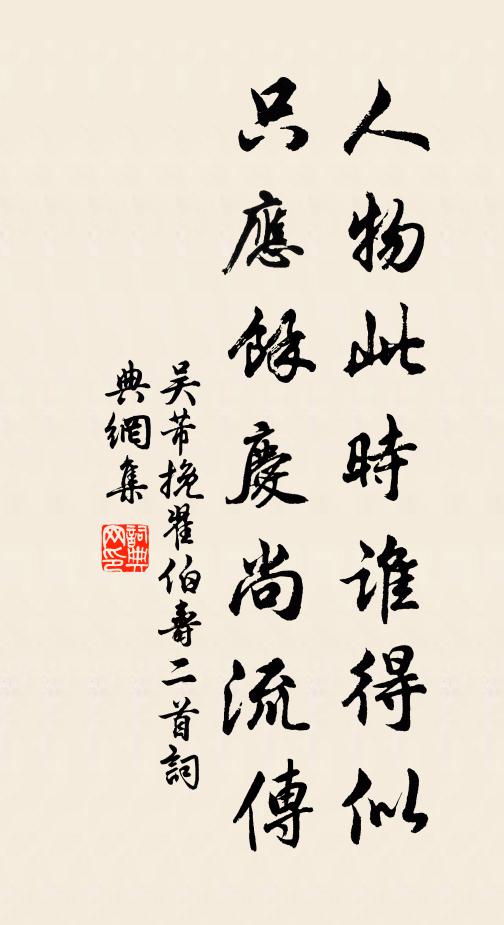 人物此時誰得似
只應餘慶尚流傳
吳芾挽翟伯壽二首詞
典網集
詞典
网印